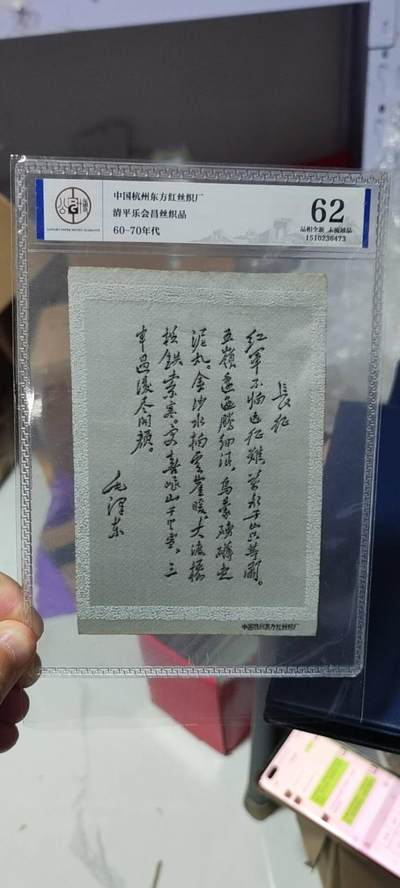 中国杭州东方红丝织厂
清平乐会昌丝织品
60~70年代
62
品相全新 未流通品
1510236473
長征
红军不怕远征難。萬水千山只等闲。
五嶺逶迤腾细浪,烏蒙磅礴走
泥丸。金沙水拍雲崖暖,大渡橋
横铁索寒。更喜岷山千里雪,三
军过後尽开颜。
毛泽东
中国杭州东方红丝织厂